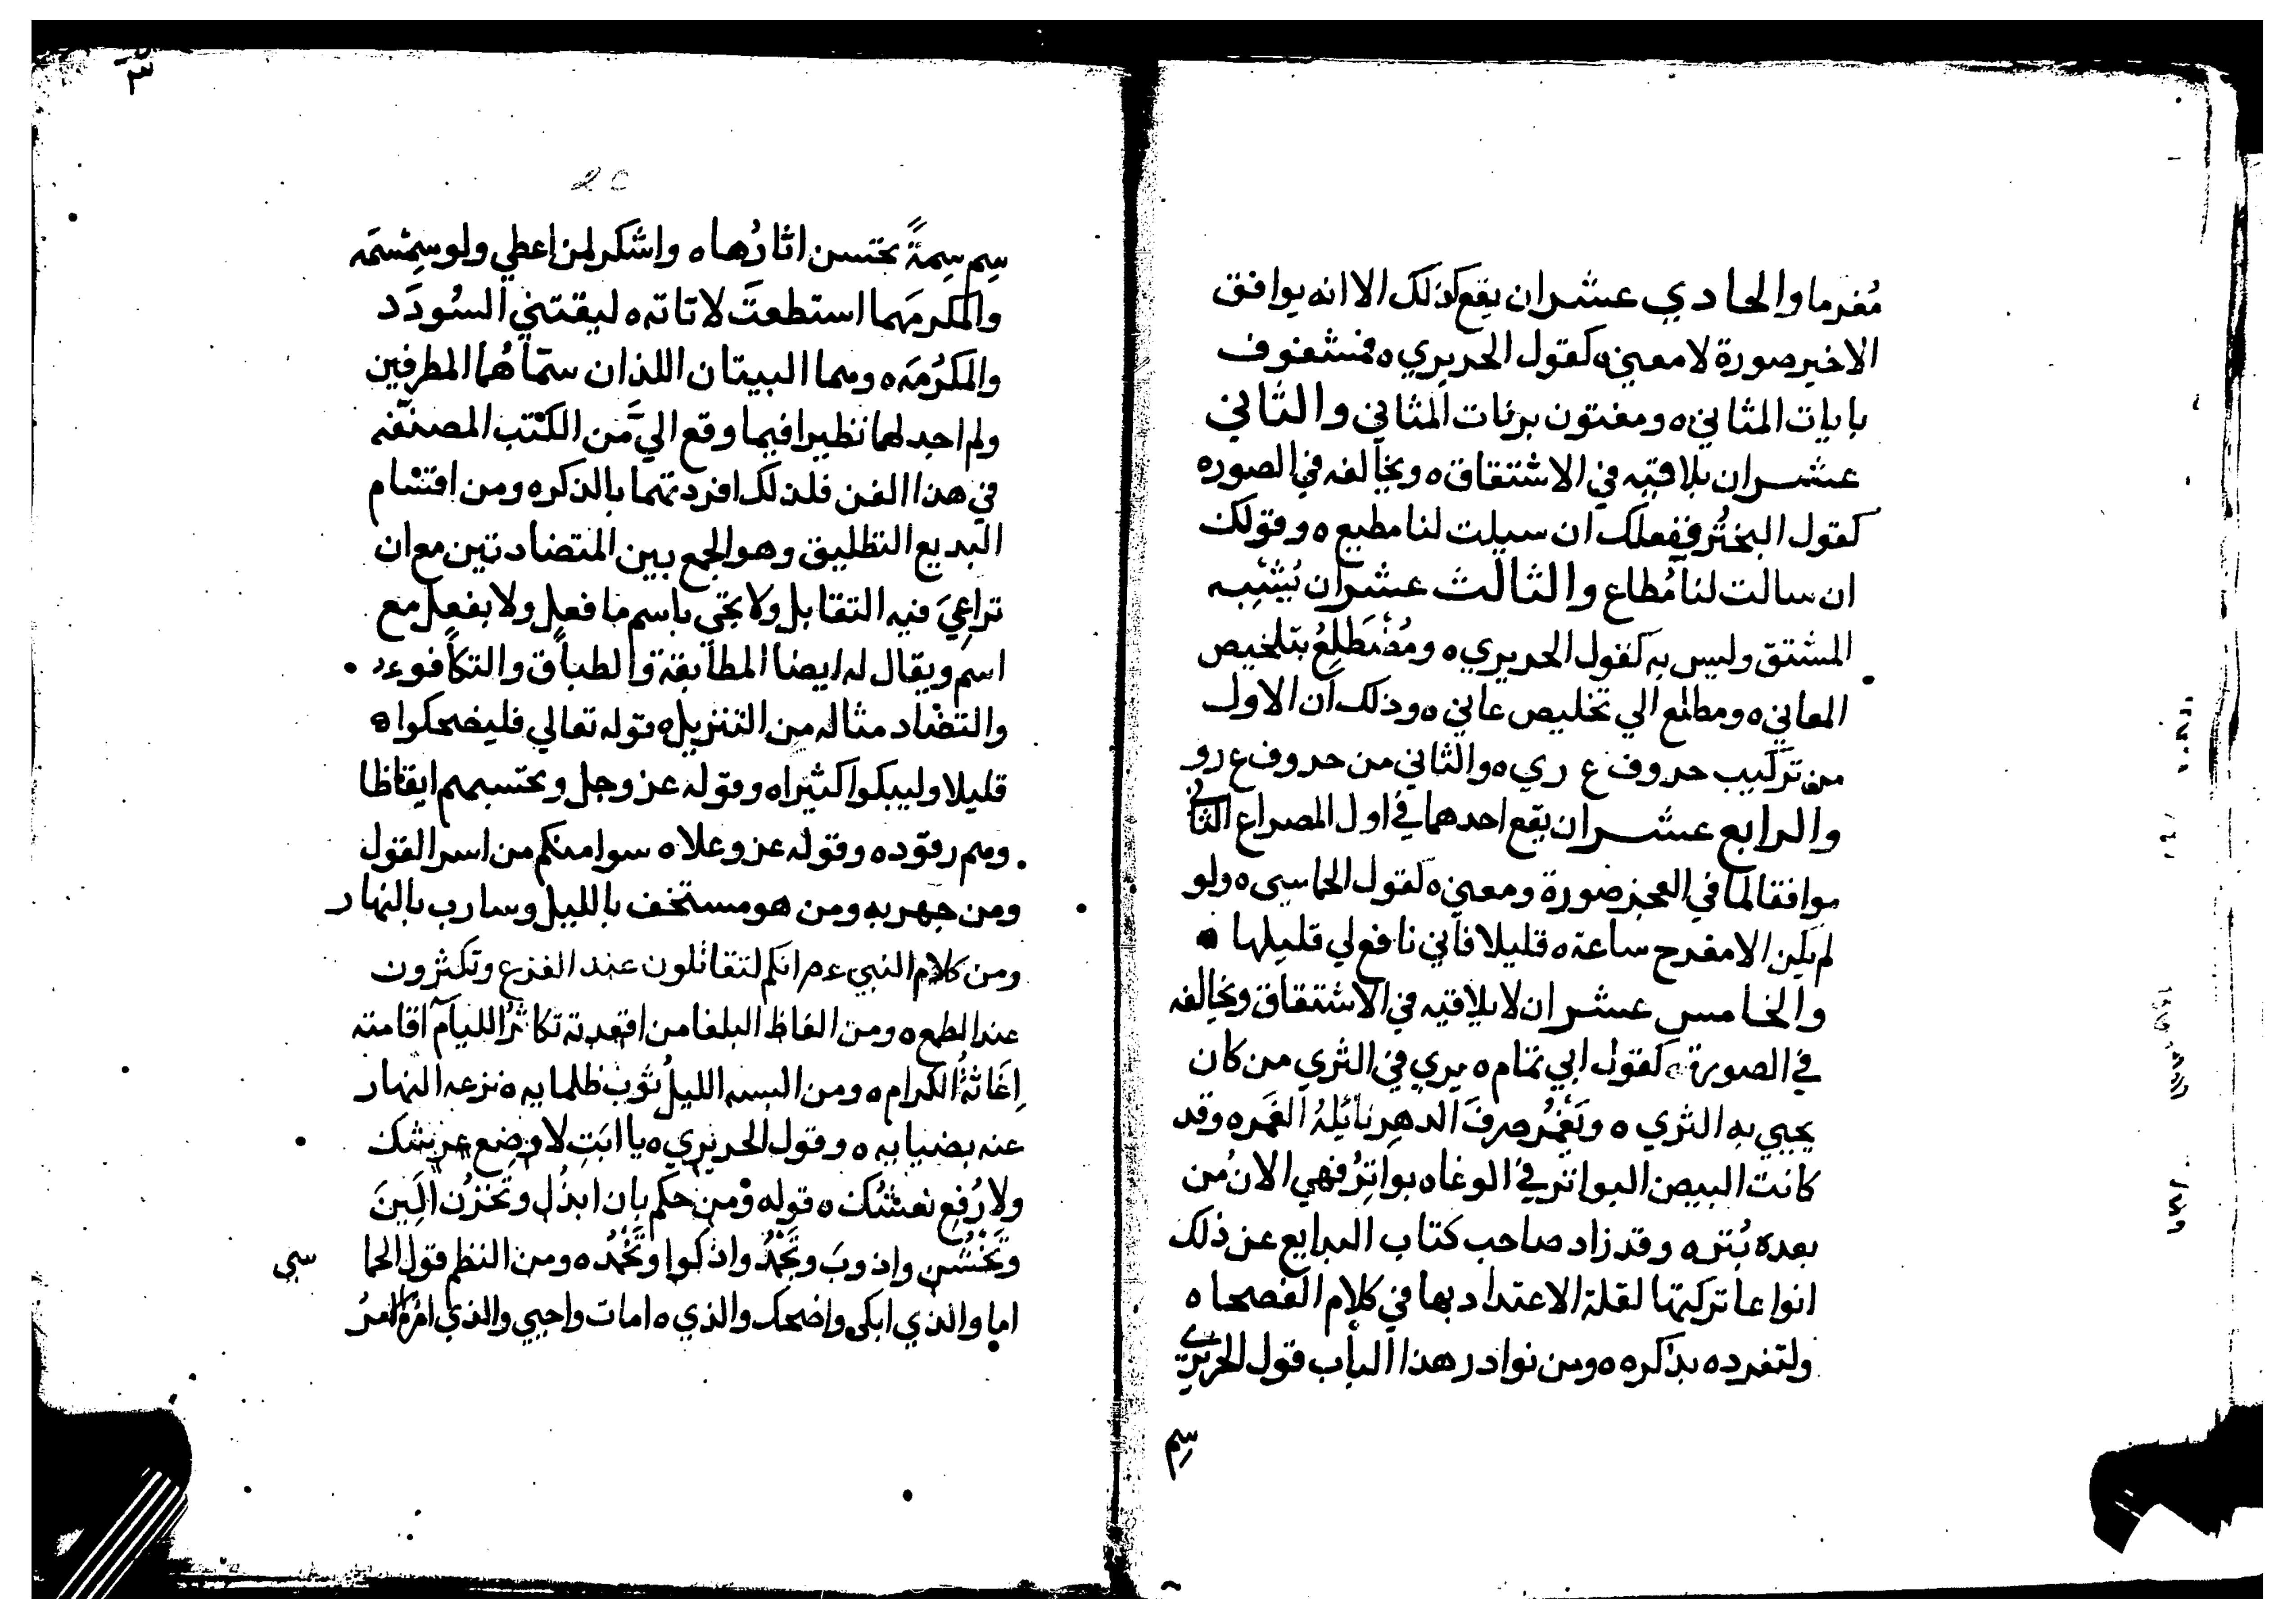 مُغرما والحادي عشر ان يقع كذلك الا انه يوافق
الاخير صورة لا معنىً ه كقول الحريري ه فمشغوف
بايات المثاني ه ومفتون برنات المثاني والثاني
عشر ان يلاقيه في الاشتقاق ه ويخالفه في الصوره
كقول البختُر ففعلك ان سيلت لنا مطيع ه وقولك
ان سالت لنا مُطاع والثالث عشر ان يُشْبِه
المشتق وليس به كقول الحريري ه ومُضْطَلِعُ بتلخيص
المعاني ه ومطلع الي تخليص عاني ه وذلك ان الاول
من تركيب حروف ع ري ه والثاني من حروف ع رو
والرابع عشر ان يقع احدهما في اول المصراع الثاني
موافقا لما في العجز صورة ومعنىً ه كقول الحماسى ه ولو
لم يكن الا مفرح ساعة ه قليلا فاني نافع لي قليلها ه
والخامس عشر ان لا يلاقيه في الاشتقاق ويخالفه
في الصورة ه كقول ابي تمام ه يري في الثري من كان
يحيي به الثري ه ويَغْمُر صرفَ الدهر نائِلهُ الغَمره وقد
كانت البيض البواتر في الوغاه بواتِرُ فهي الان من
بعده بُتره وقد زاد صاحب كتاب البدايع عن ذلك
انواعا تركبتها لقلة الاعتداد بها في كلام الفصحاه
ولتفرده بذكره ه ومن نوادر هذا الباب قول الحريري
سِم
٣
سِم سِمةً تحتسن اثارُها ه واشكر لمن اعطي ولو سِمْسَمَه
والمكر مَهما استطعتَ لا تاته ه لبقتني السُودَد
والمكرُمَه ه وهما البيتان اللذان سمّاهُما المطرفين
ولم اجد لهما نظيرا فيما وقع اليَّ من الكتب المصنّفه
في هذا الفن فلذلك افردتهما بالذكره ومن اقسام
البديع التطليق وهو الجمع بين المتضادتين مع ان
تراعِيَ فيه التقابل ولا تجي باسم ما فعل ولا بفعل مع
اسم ويقال له ايضا المطابقة والطباق والتكافوء
والتضاد مثاله من التنزيل ه قوله تعالي فليضحكوا ه
قليلا وليبكوا كثيراه وقوله عز وجل وتحتسبهم ايقاظا
وهم رقوده وقوله عز وعلاه سوا منكم من اسر القول
ومن جهر به ومن هو مستخف بالليل وسارب بالنهار
ومن كلام النبي عم انكم لتقاتلون عند الفزع وتكثرون
عند الطمع ه ومن الفاظ البلغا من اقعدته تكاثرُ الليام اقامته
اِغَاثةُ الكرام ه ومن البسه الليلُ ثوب ظلمايه ه نزعه النهار
عنه بضيايه ه وقول الحريري ه يا ابَتِ لا وضِع عرشك
ولا رُفِع نعشُك ه قوله ومن حكم بان ابذُل وتَخزُن الَينَ
وتَخْشُن واذوبَ وتَجْمُدُ واذكوا وتَخْمُده ومن النظم قول الحما سي
اما والذي ابكى واضحك والذي ه امات واحيي والذي امْرُهُ الامرُ